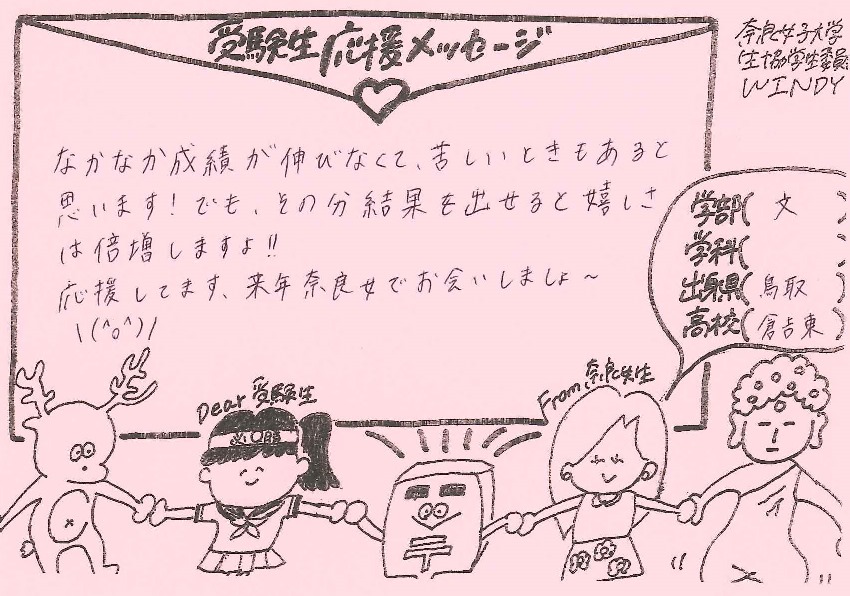 受験生応援メッセージ
奈良女子大学
生協学生委員
WINDY
なかなか成績が伸びなくて、苦しいときもあると
思います！でも、その分結果を出せると嬉しさ
は倍増しますよ!!
応援してます、来年奈良女でお会いしましょ〜
\(^o^)/
学部( 文 )
学科( )
出身県( 鳥取 )
高校( 倉吉東 )
Dear 受験生
From 奈良女生
必勝
〒